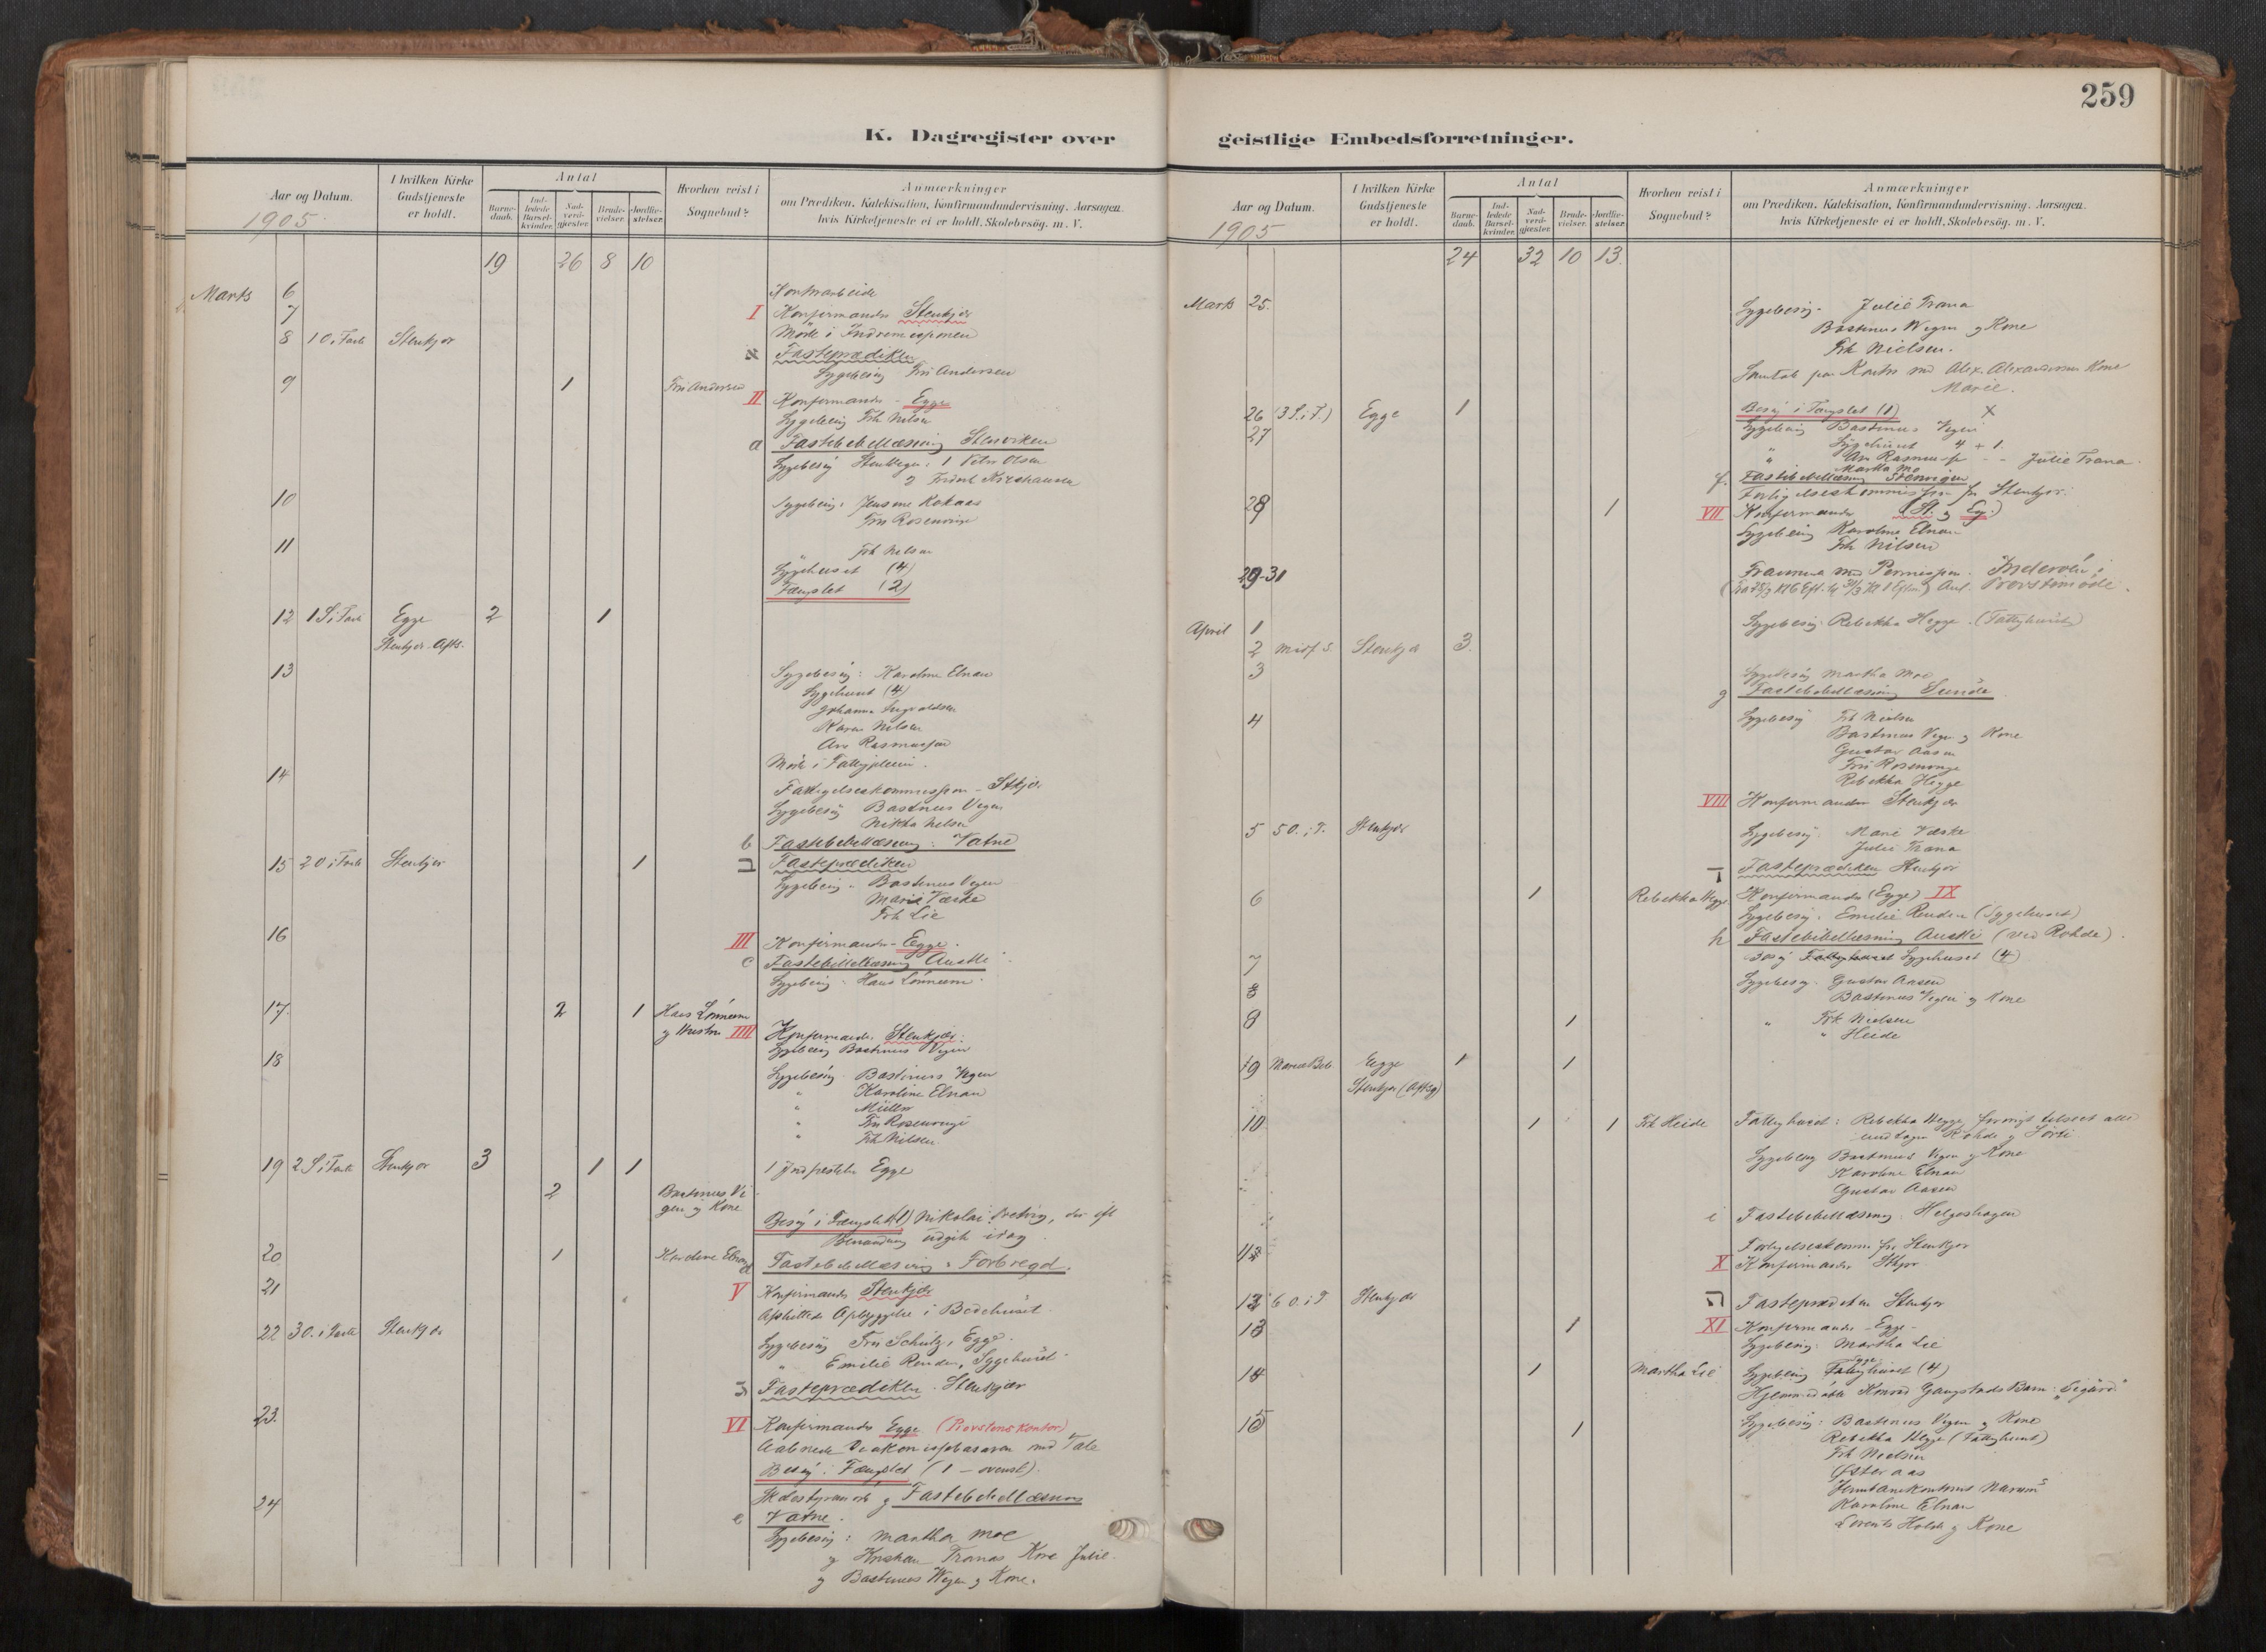 259
K. Dagregister over geistlige Embedsforretninger.
Aar og Datum.
1905
I hvilken Kirke Gudstjeneste er holdt.
Antal
Barne-daab.
Ind-ledede Barsel-kvinder.
Nad-verd-gjæster.
Brude-vielser.
Jordfæ-stelser.
Hvorhen reist i Sognebud?
Anmærkninger
om Prædiken, Katekisation, Konfirmandundervisning, Aarsagen,
hvis Kirketjeneste ei er holdt, Skolebesög, m. V.
19 26 8 10
Marts 6 Kontorarbeide
7 I Konfirmander Stenkjær
Möde i Indremisjonen
8 1 O. i Faste Stenkjær
א Fasteprædiken
Sygebesög Fru Andersen
9 1 Fru Andersen
II Konfirmander - Egge
Sygebesög Frk Nilsen
a Fastebibellæsning Stenviken
Sygebesög 1 Peter Olsen
2
10 Sygebesög:
Fru Rosenvinge
11 Frk Nilsen
Sygehuset (4)
Fængslet (2)
12 1 S i Faste Egge 2 1
Stenkjær Afts.
13 Sygebesög: Karoline Elnan
Sygehuset (4)
Johanna Ingvaldsen
Karen Nilsen
Arn Rasmussen
Möde i
14 Forligelseskommission - Stkjær
Sygebesög Bastinus Vegen
Nilsen
b Fastebibellæsning: Vatne
15 2 O i Faste Stenkjær 1
ב Fasteprædiken
Sygebesög - Bastinus Vegen
Marie Væske
Frk Lie
16 III Konfirmander - Egge.
c Fastebibellæsning Austli
Sygebesög: Hans Lönnem
17. 2 1 Hans Lönnem
og Hustru IIII Konfirmander Stenkjær.
Sygebesög Bastinus Vegen
18 Sygebesög. Bastinus Vegen
" Karoline Elnan
" Müller
" Fru Rosenvinge
" Frk Nilsen
19 2 S i Faste Stenkjær 3 1 1 1 Egge
2 Bastinus Ve
gen og Kone
Besög i Fængslet (1) Nikolai der eft
udgik idag
20 1 Karoline Elnan d Fastebibellæsning: Forbregd.
21 V Konfirmander Stenkjær
Opbyggelse i Bedehuset
22 3 O. i Faste Stenkjær
Sygebesög Fru Schulz, Egge
" Emilie Renden, Sygehuset
ג Fasteprædiken. Stenkjær
23. VI Konfirmander Egge (Provstens Kontor)
Aabnede med Tale
Besög i Fængslet (1 - svensk).
24 og Fastebibellæsning
e Vatne.
Sygebesög: Martha Moe
og Tranas Kone Julie
og Bastinus Vegen og Kone.
Aar og Datum.
1905
I hvilken Kirke Gudstjeneste er holdt.
Antal
Barne-daab.
Ind-ledede Barsel-kvinder.
Nad-verd-gjæster.
Brude-vielser.
Jordfæ-stelser.
Hvorhen reist i Sognebud?
Anmærkninger
om Prædiken, Katekisation, Konfirmandundervisning, Aarsagen,
hvis Kirketjeneste ei er holdt, Skolebesög, m. V.
24 32 10 13.
Marts 25. Sygebesög. Julie Trana
Bastinus Vegen og Kone
Frk Nielsen.
Samtale paa Kontor med Alex. Alexandersen Kone
Marie.
26 (3 S. i F.) Egge 1 Besög i Fængslet (1) X
27 Sygebesög Bastinus Vegen
Sygehuset 4 + 1
" Arn Rasmussen - - Julie Trana
Martha Mo
f. Fastebibellæsning Stenvigen
Forligelseskommission for Stenkjær.
28 1 VII Konfirmander (St. og Eg.)
Sygebesög Karoline Elnan
Frk Nilsen
29-31 Fraværende med Permission. Inderöen i
Anl. Provstimöde.
April 1 Sygebesög. Rebekka Hegge. (Fattighuset)
2 Midf. S. Stenkjær 3.
3 Sygebesög Martha Moe
g Fastebibellæsning Sunde
4 Sygebesög Frk Nielsen
Bastinus Vegen og Kone
Gustav Aasen
Fru Rosenvinge
Rebekka Hegge
VIII Konfirmander Stenkjær
5 5 O. i F. Stenkjær
Sygebesög. Marie Væske
Julie Trana
ד Fasteprædiken Stenkjær
6 1 Rebekka Hegge Konfirmander (Egge) IX
Sygebesög. Emilie Renden (Sygehuset)
h Fastebibellæsning Austli (ved Rohde).
7 Besög Sygehuset (4)
8 Sygebesög. Gustav Aasen
Bastinus Vegen og Kone
8 1 " Frk Nielsen
" Heide
9 Mariæ Beb. Egge 1 1
Stenkjær (Aftsg)
10 1 1 Frk Heide Fattighuset: Rebekka Hegge, forövrigt hilset alle
undtagen Rohde og
Sygebesög Bastinus Vegen og Kone
Karoline Elnan
Gustav Aasen
i Fastebibellæsning. Helgeshagen
Forligelseskomm. for Stenkjær
X Konfirmander Stkjær
12 6 O. i F Stenkjær ה Fasteprædiken Stenkjær
13 1 XI Konfirmander - Egge -
Sygebesög. Martha Lie
14 1 Martha Lie Sygebesög Sygehuset (4)
Hjemmedöbt Konrad Gangstads Barn: "Sigurd"
15 1 Sygebesög: Bastinus Vegen og Kone
Rebekka Hegge (Fattighuset)
Frk Nielsen
Österaas
Karoline Elnan
Lorents Holde og Kone